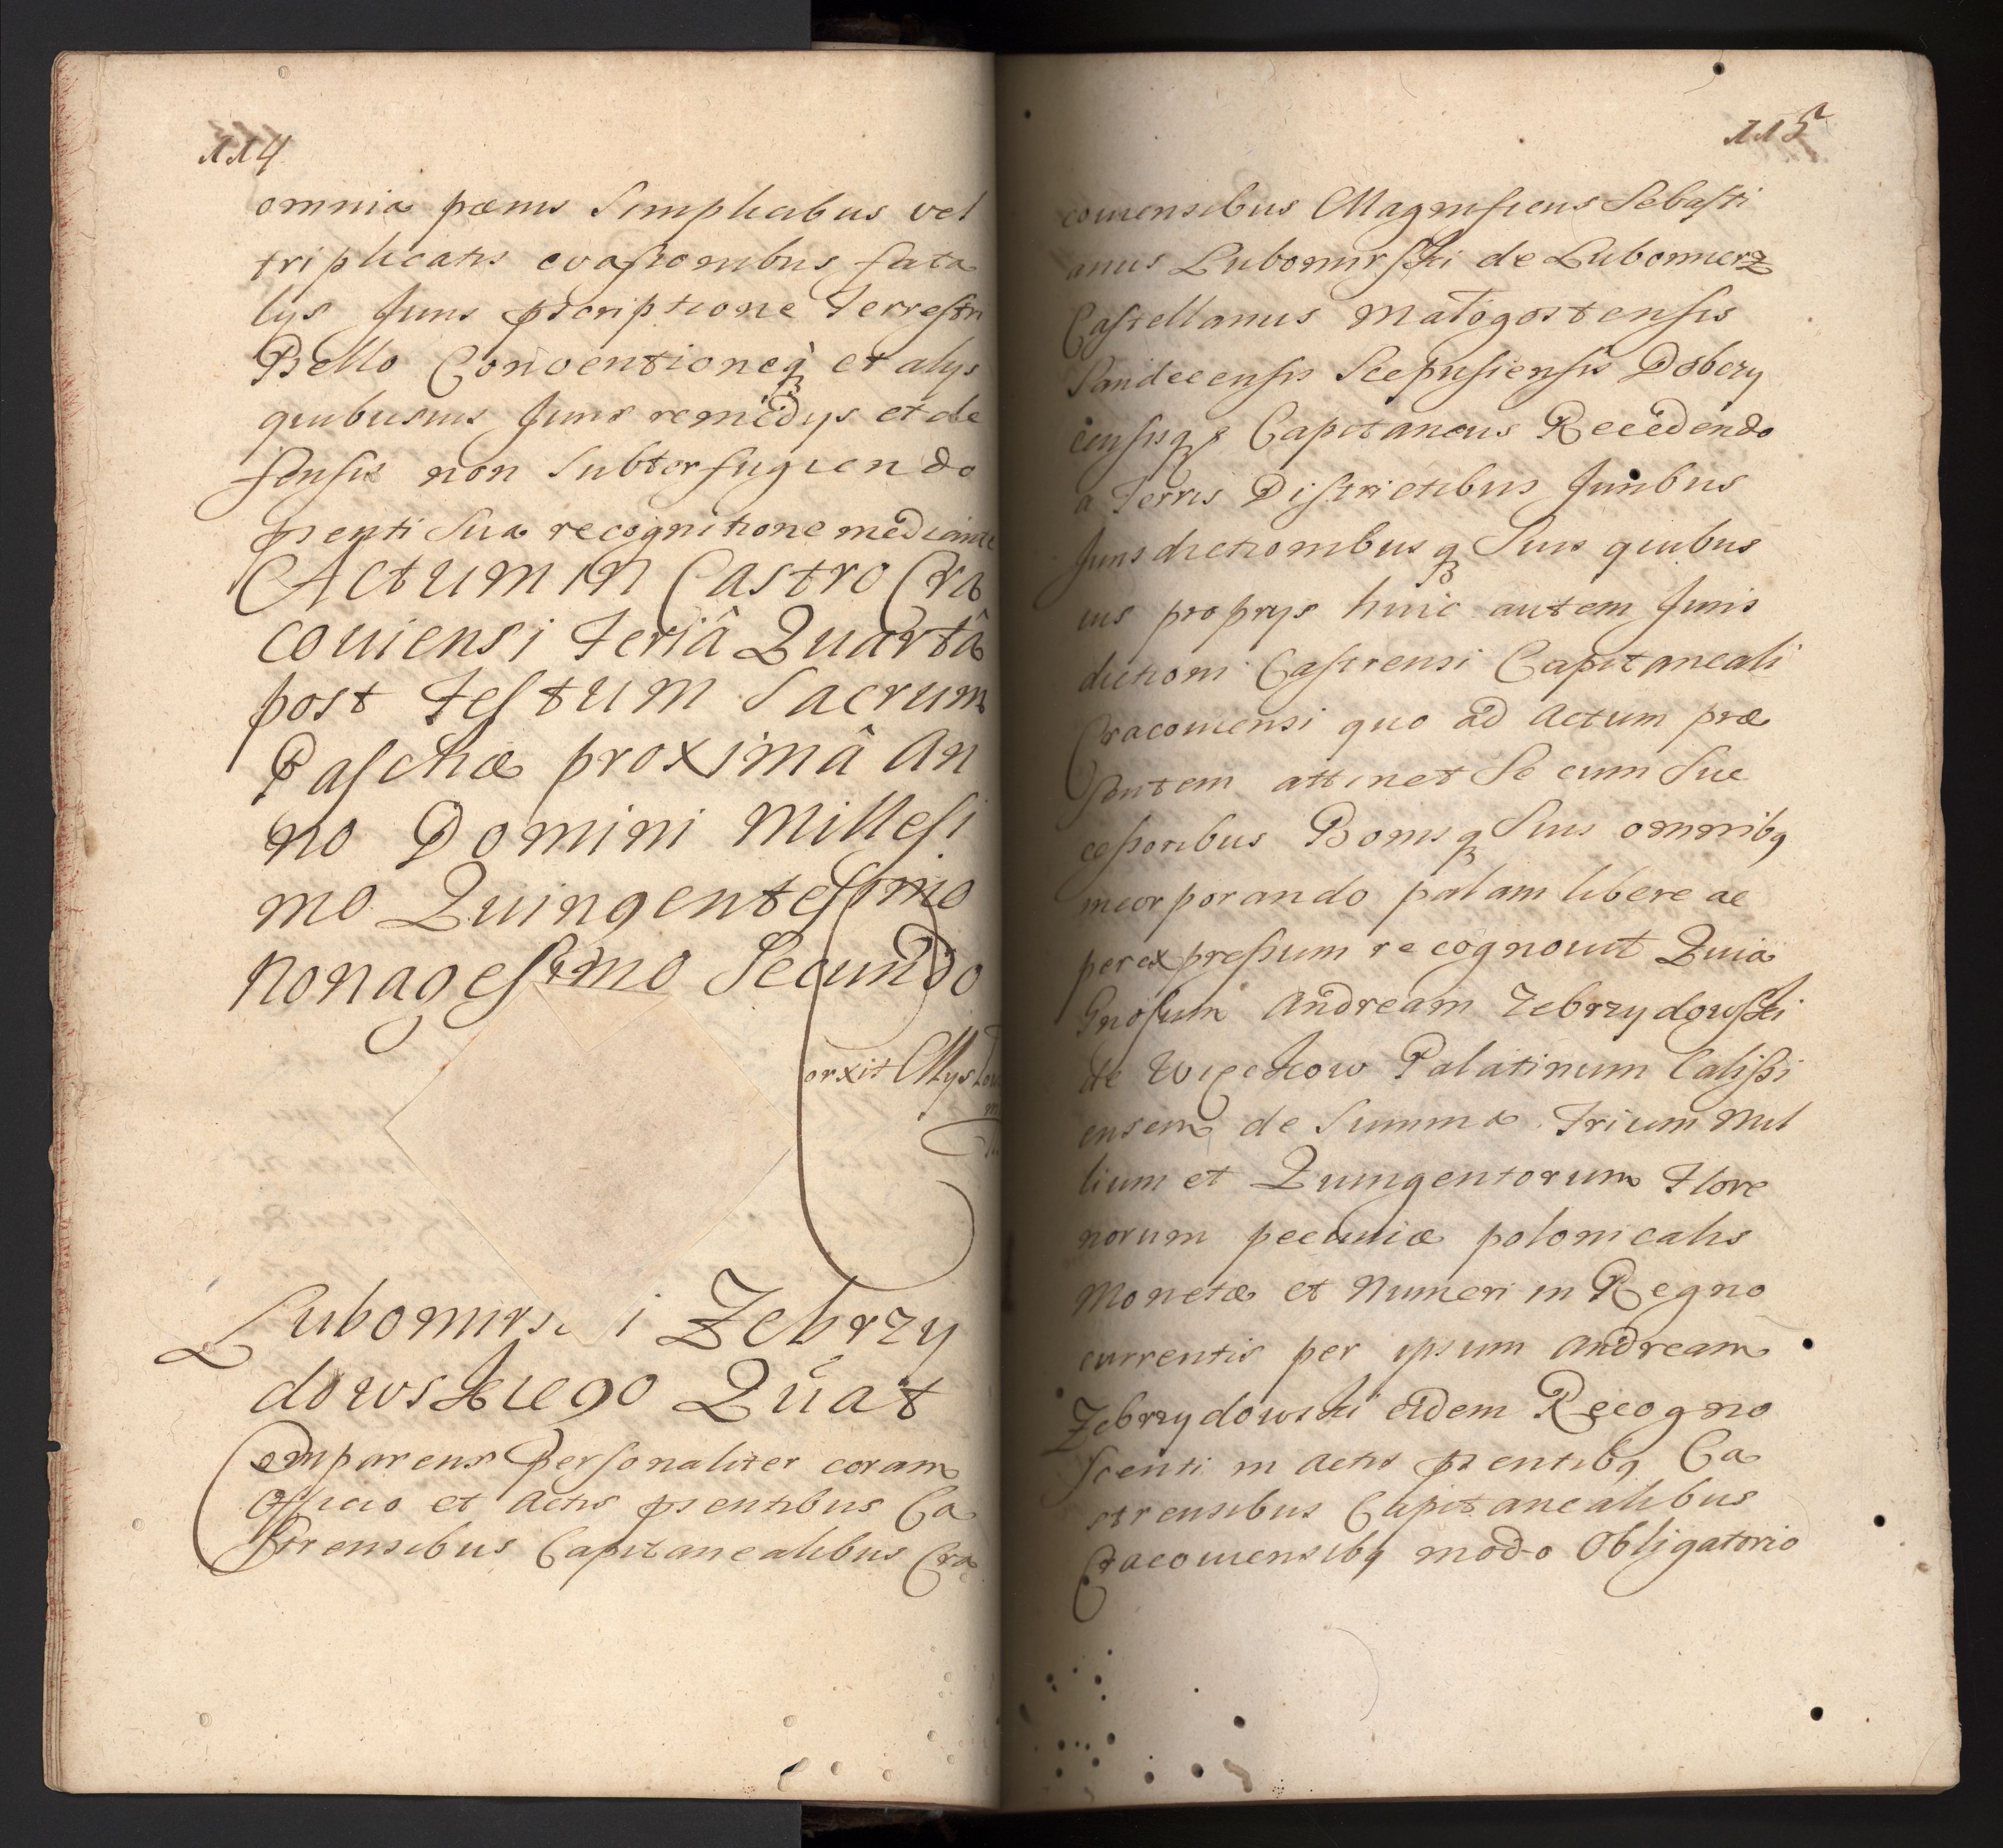 114
omnia pœnis Simplicibus vel
triplicatis evasionibus fata
lys Juris pscriptione Terrestri
Bello Conventioneq et alys
quibusvis Juris remedys et de
fensis non Subterfugiendo
psenti Sua recognitione mediante
Actum in Castro Cra
couiensi Feriâ Quartâ
post Festum Sacrum
Paschæ proximâ An
no Domini Millesi
mo Quingentesimo
Nonagesimo Secundo
orxit Mys
Lubomirs i Zebrzy
dowskiego Quat
Comparens Personaliter coram
Officio et Actis psentibus Ca
strensibus Capitanealibus Cra
115
couiensibus Magnificus Sebasti
anus Lubomirski de Lubomierz
Castellanus Małogostensis
Sandecensis Scepusiensis Dobczy
censisq Capitaneus Recedendo
a Terris Districtibus Juribus
Jurisdictionibusq Suis quibus
vis proprys huic autem Juris
dictioni Castrensi Capitaneali
Cracouiensi quo ad Actum præ
sentem attinet Se cum Suc
cessoribus Bonisq Suis omnibq
incorporando palam libere ac
per expressum recognouit Quia
Gnosum Andream Zebrzydowski
de Więckow Palatinum Calissi
ensem de Summa Trium Mil
lium et Quingentorum Flore
norum pecuniæ polonicalis
Monetæ et Numeri in Regno
currentis per ipsum Andream
Zebrzydowski eidem Recogno
scenti in Actis psentibq Ca
strensibus Capitanealibus
Cracouiensibq modo Obligatorio